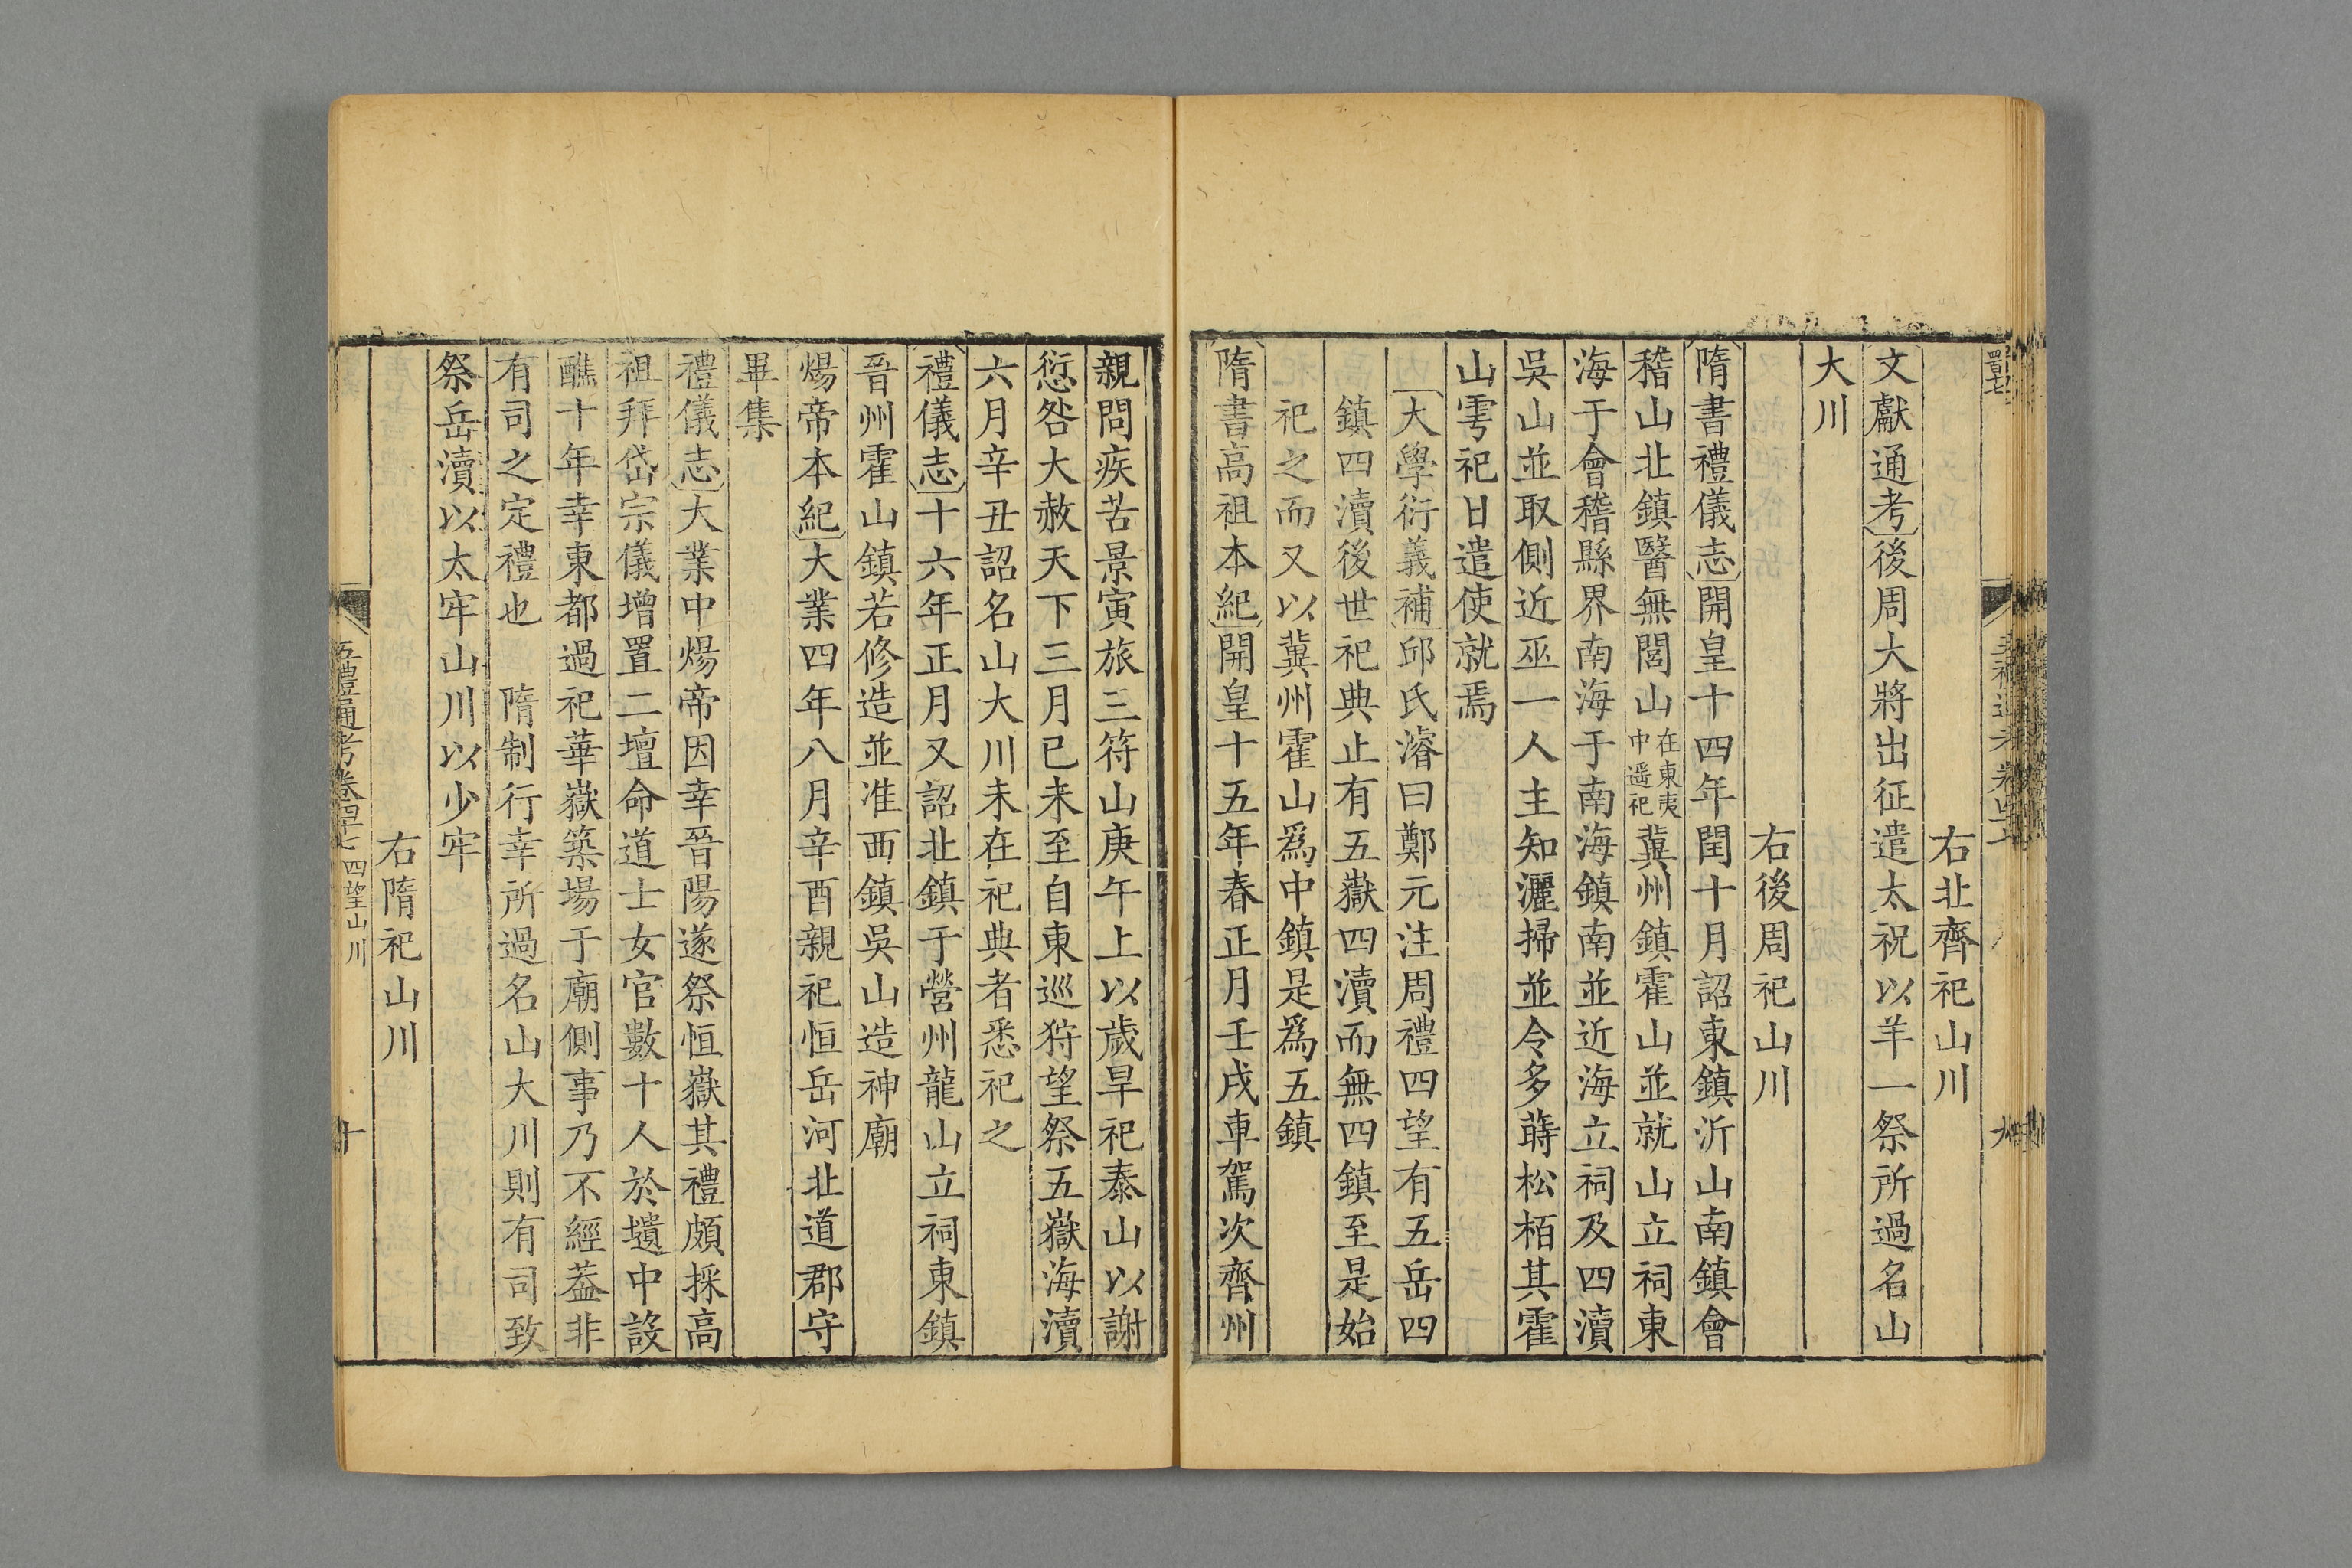 右北齊祀山川
文獻通考後周大將出征遣太祝以羊一祭所過名山
大川
右後周祀山川
隋書禮儀志開皇十四年閏十月詔東鎮沂山南鎮會
稽山北鎮醫無閭山在東夷中遥祀冀州鎮霍山並就山立祠東
海于會稽縣界南海于南海鎮南並近海立祠及四瀆
吳山並取側近巫一人主知灑掃並令多蒔松栢其霍
山雩祀日遣使就焉
大學衍義補邱氏濬曰鄭元注周禮四望有五岳四
鎮四瀆後世祀典止有五嶽四瀆而無四鎮至是始
祀之而又以冀州霍山爲中鎮是爲五鎮
隋書高祖本紀開皇十五年春正月壬戌車駕次齊州
親問疾苦景寅旅王符山庚午上以歲旱祀泰山以謝
愆咎大赦天下三月已未至自東巡狩望祭五嶽海瀆
六月辛丑詔名山大川未在祀典者悉祀之
禮儀志十六年正月又詔北鎮于營州龍山立祠東鎮
晉州霍山鎮若修造並准西鎮吳山造神廟
煬帝本紀大業四年八月辛酉親祀恒岳河北道郡守
畢集
禮儀志大業中煬帝因幸晉陽遂祭恒嶽其禮頗採高
祖拜岱宗儀增置二壇命道士女官數十人於壝中設
醮十年幸東都過祀華嶽築場于廟側事乃不經葢非
有司之定禮也　隋制行幸所過名山大川則有司致
祭岳瀆以太牢山川以少牢
右隋祀山川
五禮通考卷四十七 四望山川
十